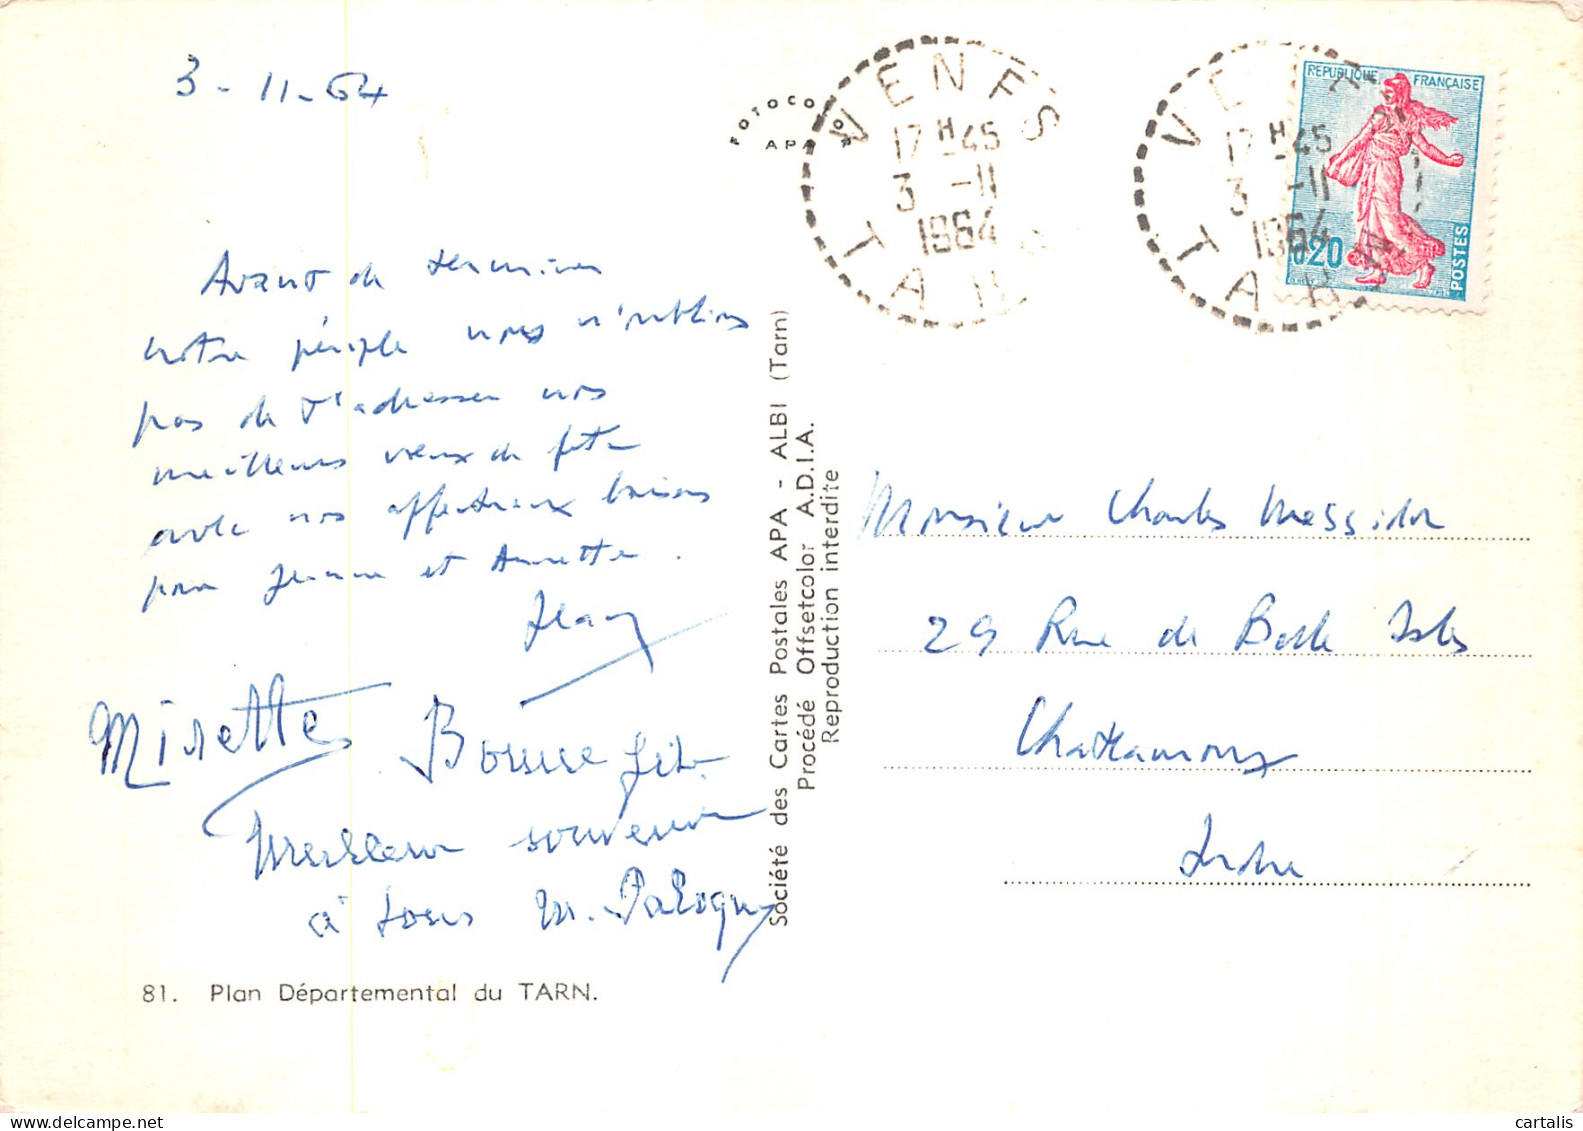 3-11-64
FOTOCOLOR
APA
VENES
17 H 45
3 -11
1964
TARN
VE
17 H 45
3 -11
1964
TARN
REPUBLIQUE FRANÇAISE
0,20
POSTES
Avant de terminer
notre périple nous n'oublions
pas de t'adresser nos
meilleurs vœux de fête
avec nos affectueux baisers
pour Jeanne et Annette.
Jean
Mirette Bonne fête
Meilleur souvenir
à tous M.
81. Plan Départemental du TARN.
Société des Cartes Postales APA - ALBI (Tarn)
Procédé Offsetcolor A.D.I.A.
Reproduction interdite
Monsieur Charles Messidor
29 Rue de Belle Isles
Chateauroux
Indre
cartalis